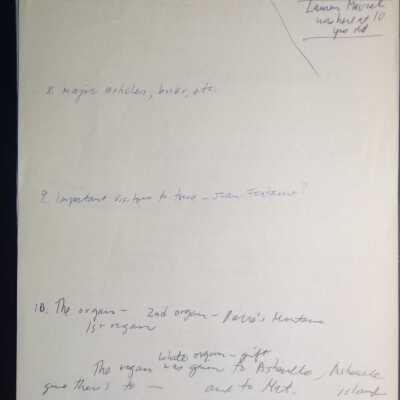 was here at 10
yrs old
8. Major articles, books, etc.
9. Important visitors to - Joan Fontaine?
10. The organ - 2nd organ -
1st organ
White organ - gift
The organ was given to Asheville, Asheville
gave theirs to — and to Mt.
island